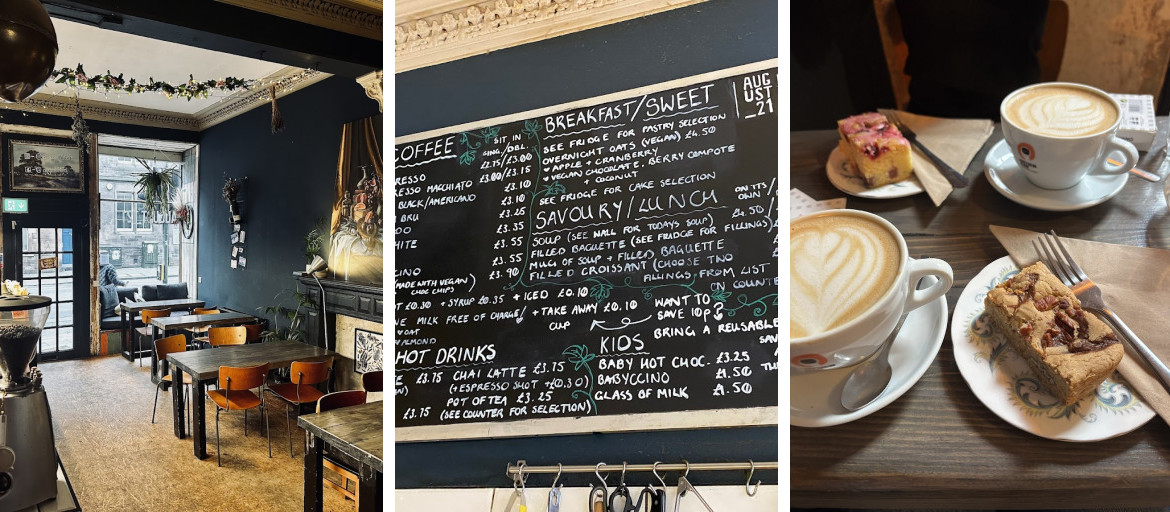 COFFEE
SIT IN
SING./DBL.
RESSO £2.75/£3.00
RESSO MACCHIATO £3.00/£3.15
BLACK/AMERICANO £3.10
BRU £3.10
DO £3.25
HITE £3.35
£3.55
£3.55
CINO £3.90
(MADE WITH VEGAN)
CHOC CHIPS)
T £0.30 + SYRUP £0.35 + ICED £0.10
NE MILK FREE OF CHARGE/
OAT
ALMOND
+ TAKE AWAY £0.10
CUP
HOT DRINKS
£3.75 CHAI LATTE £3.75
(+ESPRESSO SHOT +£0.30)
POT OF TEA £3.25
£3.75 (SEE COUNTER FOR SELECTION)
BREAKFAST/SWEET
SEE FRIDGE FOR PASTRY SELECTION
OVERNIGHT OATS (VEGAN) £4.50
APPLE + CRANBERRY
VEGAN CHOCOLATE, BERRY COMPOTE
+ COCONUT
SEE FRIDGE FOR CAKE SELECTION
SAVOURY/LUNCH
ON ITS/
OWN
SOUP (SEE WALL FOR TODAYS SOUP) £4.50/
FILLED BAGUETTE (SEE FRIDGE FOR FILLINGS)
MUG OF SOUP + FILLED BAGUETTE
FILLED CROISSANT (CHOOSE TWO
FILLINGS FROM LIST
ON COUNTE
WANT TO
SAVE 10p?
BRING A REUSABLE
SAV
KIDS
BABY HOT CHOC. £3.25
BABYCCINO £1.50
GLASS OF MILK £1.50
AUG
UST
_21